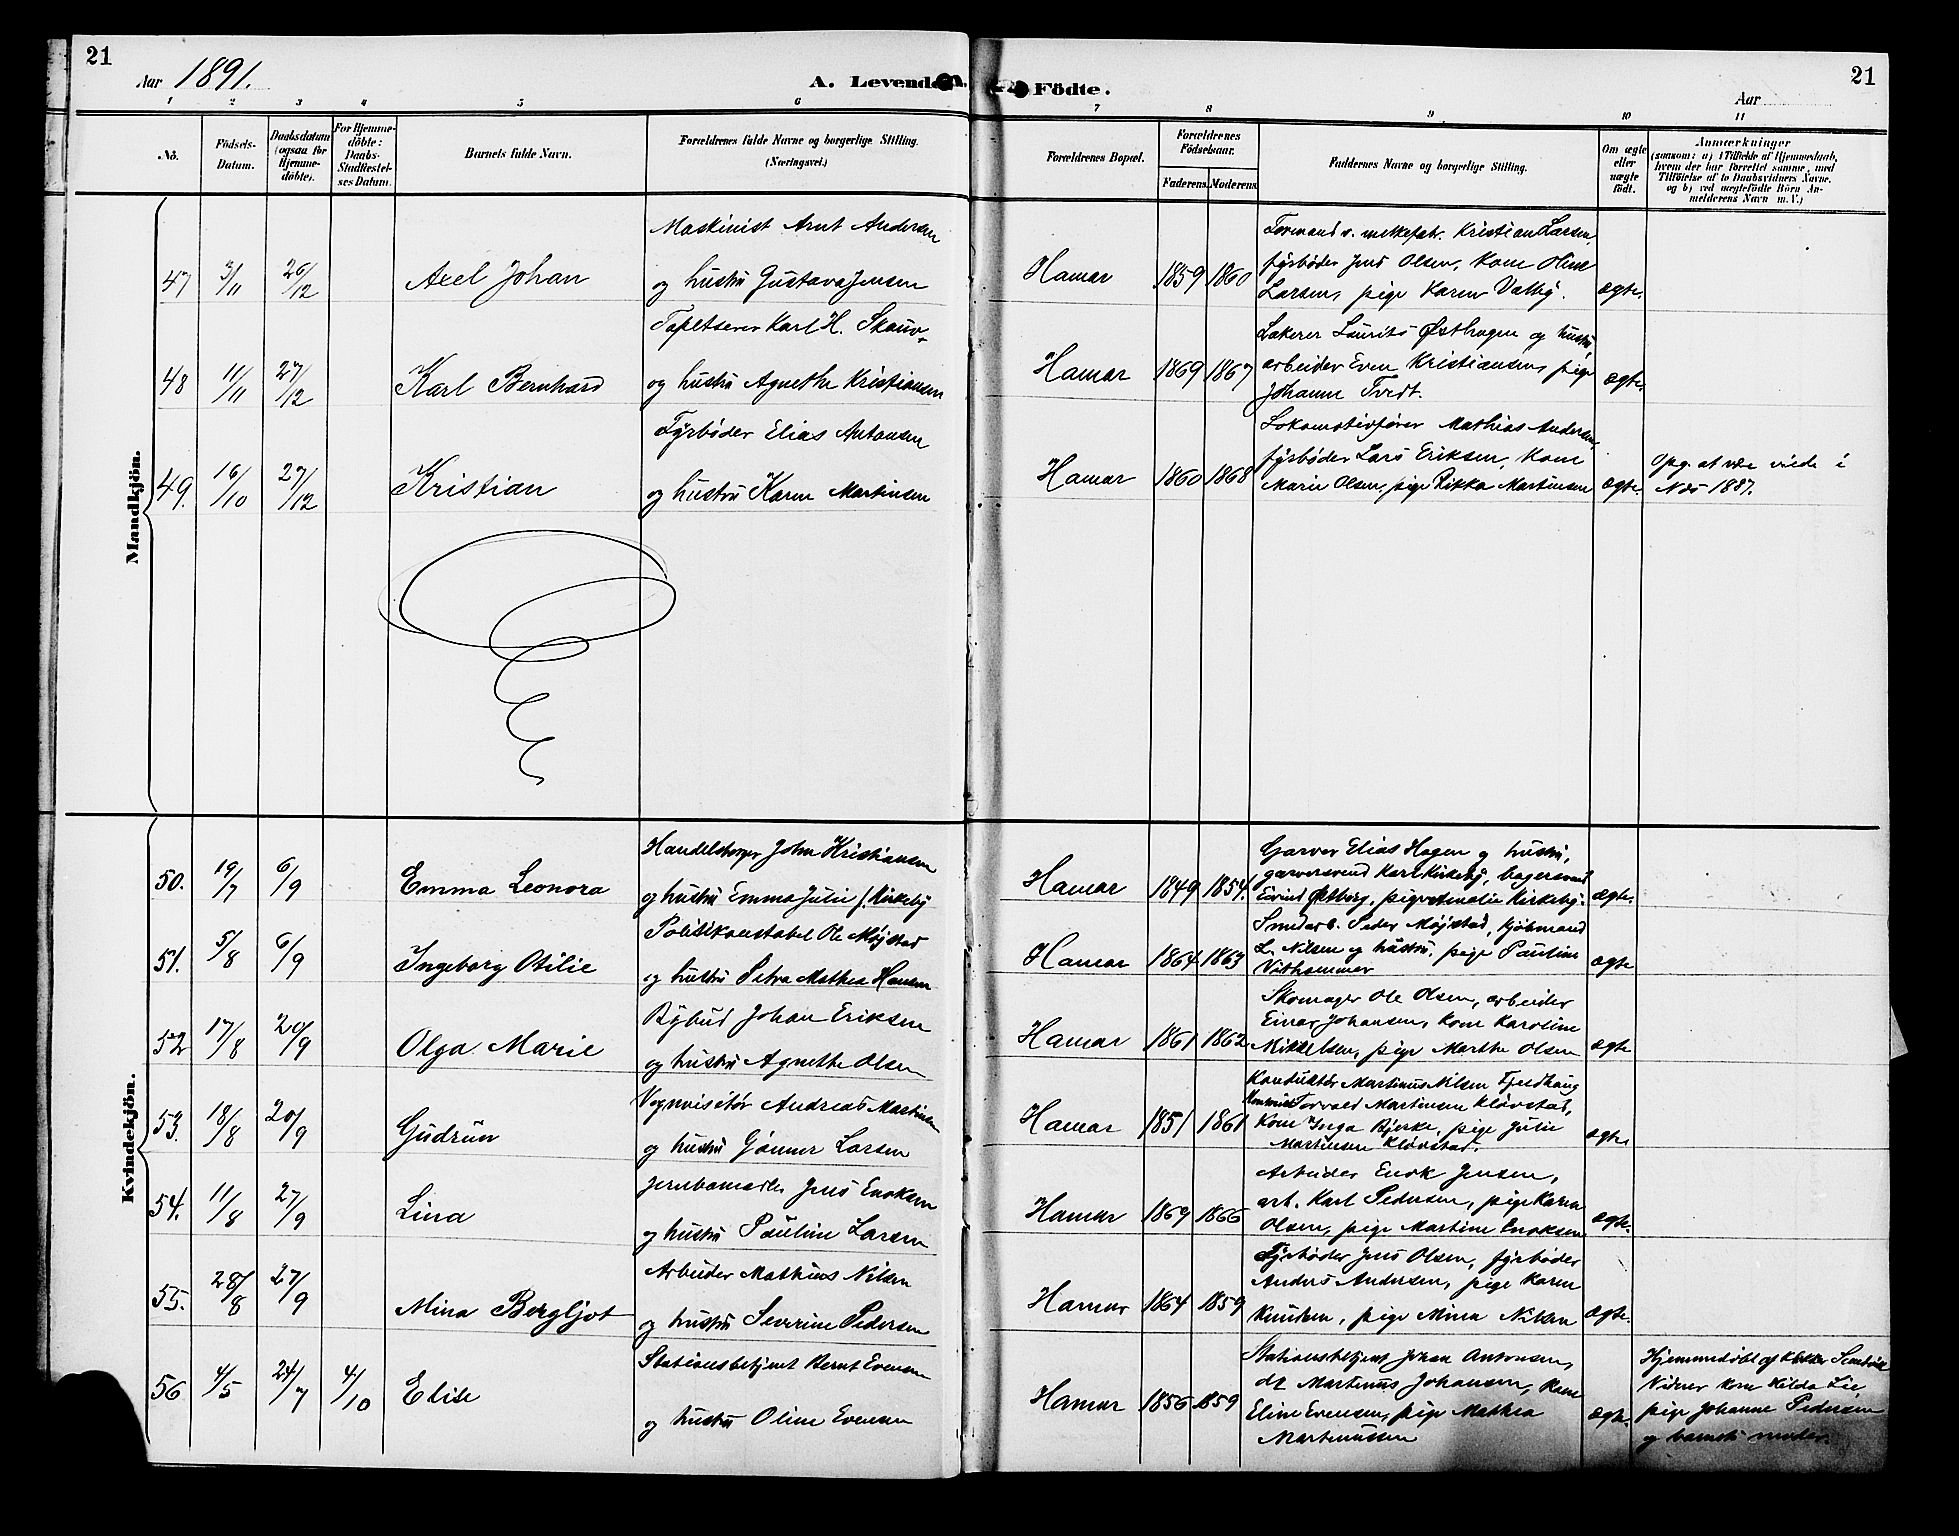 21
Aar 1891.
A. Levende
Födte.
Aar
21
1 2 3 4 5 6 7 8 9 10 11
No.
Födsels-Datum.
Daabsdatum (ogsaa for Hjemme-döbte).
For Hjemme-döbte: Daabs-Stadfæstel-ses Datum.
Barnets fulde Navn.
Forældrenes fulde Navne og borgerlige Stilling.
(Næringsvei.)
Forældrenes Bopæl.
Forældrenes Födselsaar.
Faderens. Moderens.
Faddernes Navne og borgerlige Stilling.
Om ægte eller uægte födt.
Anmærkninger
(saasom: a) i Tilfælde af Hjemmedaab, hvem der har forrettet samme, med Tilföielse af to Daabsvidners Navne, og b) ved uægtefödte Börn Anmelderens Navn m. V.)
Mandkjön.
47 3/11 26/12 Axel Johan
Maskinist Arnt Andersen
og hustru Gustava Jensen
Hamar 1859 1860
Formand v. melkefab. Kristian Larsen,
fyrbøder Jens Olsen, kone
Larsen, pige Karen Valby.
ægte.
48 11/11 27/12 Karl Bernhard
Tapetserer Karl H. Skauv
og hustru Agnethe Kristiansen
Hamar 1869 1867
Lakerer Laurits Østhagen og hustru,
arbeider Even Kristiansen, pige
Johanne Tvedt.
ægte.
49. 16/10 27/12 Kristian
Fyrbøder Elias Antonsen
og hustru Karen Martinsen
Hamar 1860 1868
Lokomotivfører Mathias Andersen,
fyrbøder Lars Eriksen, kone
Marie Olsen, pige Rikka Martinsen
ægte.
Opg. at være viede i
Næs 1887.
Kvindekjön.
50. 19/7 6/9 Emma Leonora
Handelsborger John Kristiansen
og hustru Emma Julie f. Kirkeby
Hamar 1849 1854.
Garver Elias Hagen og hustru,
garversvend Karl Kirkeby, bagersvend
Eivind Østberg, pige Kirkeby.
ægte.
51. 5/8 6/9 Ingeborg Otilie
Politikonstabel Ole Møjstad
og hustru Petra Mathea Hansen
Hamar 1864 1863
Smedarb. Peder Møjstad, kjøbmand
L. Nilsen og hustru, pige Pauline
Vidhammer
ægte
52 17/8 20/9 Olga Marie
Bybud Johan Eriksen
og hustru Agnethe Olsen
Hamar 1861 1862
Skomager Ole Olsen, arbeider
Einar Johansen, kone Karoline
Mikkelsen, pige Marthe Olsen
ægte
53. 18/8 20/9 Gudrun
Vognvisitør Andreas Martinsen
og hustru Gunner Larsen
Hamar 1851 1861
Konduktør Martinus Nilsen Fjeldhaug
Torvald Martinsen Kløvstad,
kone Inga Bjerke, pige Julie
Martinsen Kløvstad.
ægte
54. 11/8 27/9 Lina
Jernbanearb. Jens Enoksen
og hustru Pauline Larsen
Hamar 1869 1866
Arbeider Enok Jensen,
arb. Karl Pedersen, pige Karen
Olsen, pige Martine Enoksen
ægte.
55. 28/8 27/9 Mina Bergljot
Arbeider Mathias Nilsen
og hustru Severine Pedersen
Hamar 1864 1859
Fyrbøder Jens Olsen, fyrbøder
Anders Andersen, pige Karen
Knudsen, pige Mina Nilsen
ægte.
56 4/5 24/7 4/10 Elise
Stationsbetjent Bernt Evensen
og hustru Oline Evensen
Hamar 1856 1859
Stationsbetjent Johan Antonsen,
do Martinus Johansen, kone
Eline Evensen, pige Mathea
Martinussen
ægte.
Hjemmedøbt af
Vidner kone Hilda Lie,
pige Johanne Pedersen
og barnets moder.